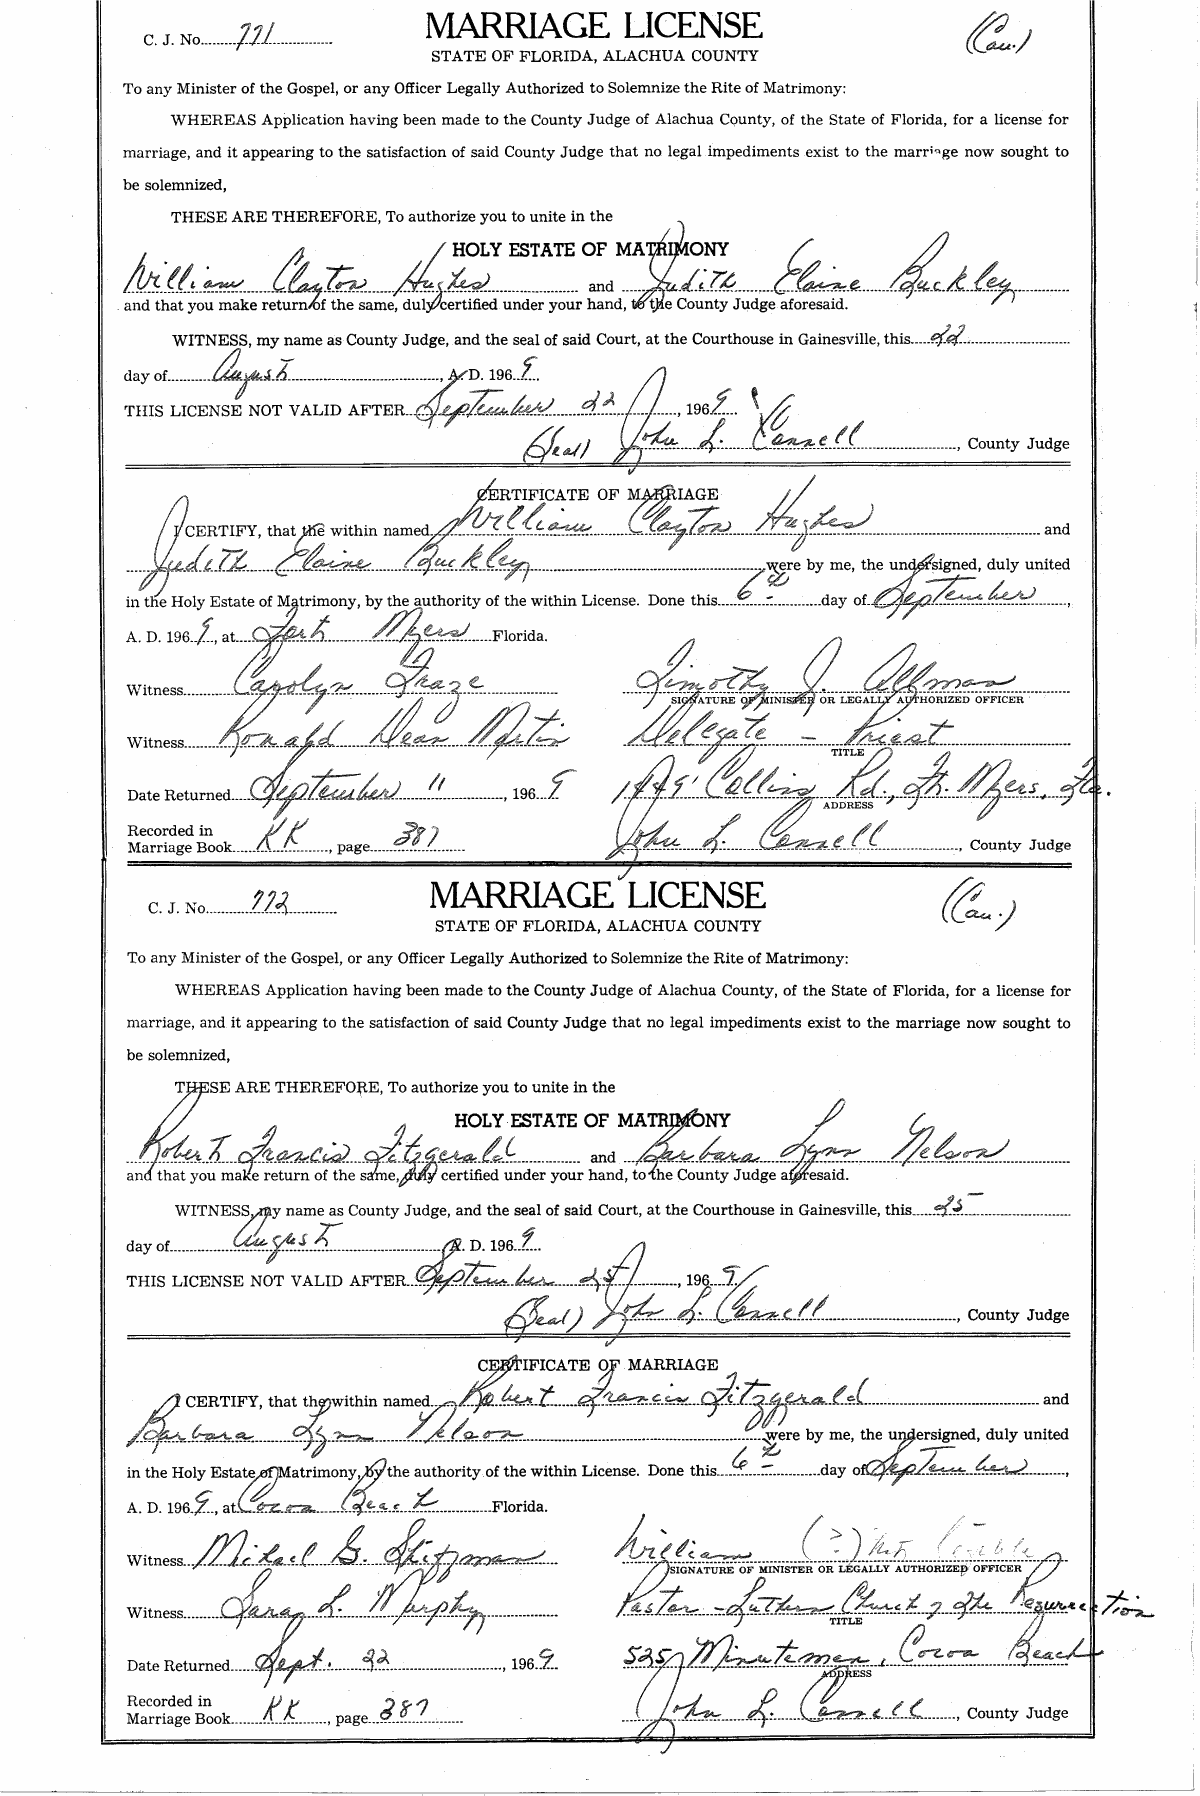 C. J. No. 771
MARRIAGE LICENSE
(Cau.)
STATE OF FLORIDA, ALACHUA COUNTY
To any Minister of the Gospel, or any Officer Legally Authorized to Solemnize the Rite of Matrimony:
WHEREAS Application having been made to the County Judge of Alachua County, of the State of Florida, for a license for
marriage, and it appearing to the satisfaction of said County Judge that no legal impediments exist to the marriage now sought to
be solemnized,
THESE ARE THEREFORE, To authorize you to unite in the
HOLY ESTATE OF MATRIMONY
William Clayton Hughes and Judith Elaine Buckley
and that you make return of the same, duly certified under your hand, to the County Judge aforesaid.
WITNESS, my name as County Judge, and the seal of said Court, at the Courthouse in Gainesville, this 22
day of August, A. D. 1969
THIS LICENSE NOT VALID AFTER September 22, 1969
(Seal) John L. Connell, County Judge
CERTIFICATE OF MARRIAGE
I CERTIFY, that the within named William Clayton Hughes and
Judith Elaine Buckley were by me, the undersigned, duly united
in the Holy Estate of Matrimony, by the authority of the within License. Done this 6th day of September,
A. D. 1969, at Fort Myers Florida.
Witness Carolyn Fraze Timothy J. Allman
SIGNATURE OF MINISTER OR LEGALLY AUTHORIZED OFFICER
Witness Ronald Dean Martin Delegate - Priest
TITLE
Date Returned September 11, 1969 Collins Rd., Ft. Myers, Fla.
ADDRESS
Recorded in
Marriage Book KK, page 387 John L. Connell, County Judge
C. J. No. 772
MARRIAGE LICENSE
(Cau.)
STATE OF FLORIDA, ALACHUA COUNTY
To any Minister of the Gospel, or any Officer Legally Authorized to Solemnize the Rite of Matrimony:
WHEREAS Application having been made to the County Judge of Alachua County, of the State of Florida, for a license for
marriage, and it appearing to the satisfaction of said County Judge that no legal impediments exist to the marriage now sought to
be solemnized,
THESE ARE THEREFORE, To authorize you to unite in the
HOLY ESTATE OF MATRIMONY
Robert Francis Fitzgerald and Barbara Lynn Nelson
and that you make return of the same, duly certified under your hand, to the County Judge aforesaid.
WITNESS, my name as County Judge, and the seal of said Court, at the Courthouse in Gainesville, this 25
day of August A. D. 1969
THIS LICENSE NOT VALID AFTER September 25, 1969
(Seal) John L. Connell, County Judge
CERTIFICATE OF MARRIAGE
I CERTIFY, that the within named Robert Francis Fitzgerald and
Barbara Lynn Nelson were by me, the undersigned, duly united
in the Holy Estate of Matrimony, by the authority of the within License. Done this 6th day of September,
A. D. 1969, at Cocoa Beach Florida.
Witness Mikael G. William (?) Not Legible
SIGNATURE OF MINISTER OR LEGALLY AUTHORIZED OFFICER
Witness Sara L. Murphy Pastor - Luthern Church of the Resurrection
TITLE
Date Returned Sept. 22, 1969 525 Minutemen, Cocoa Beach
ADDRESS
Recorded in
Marriage Book KK, page 387 John L. Connell, County Judge